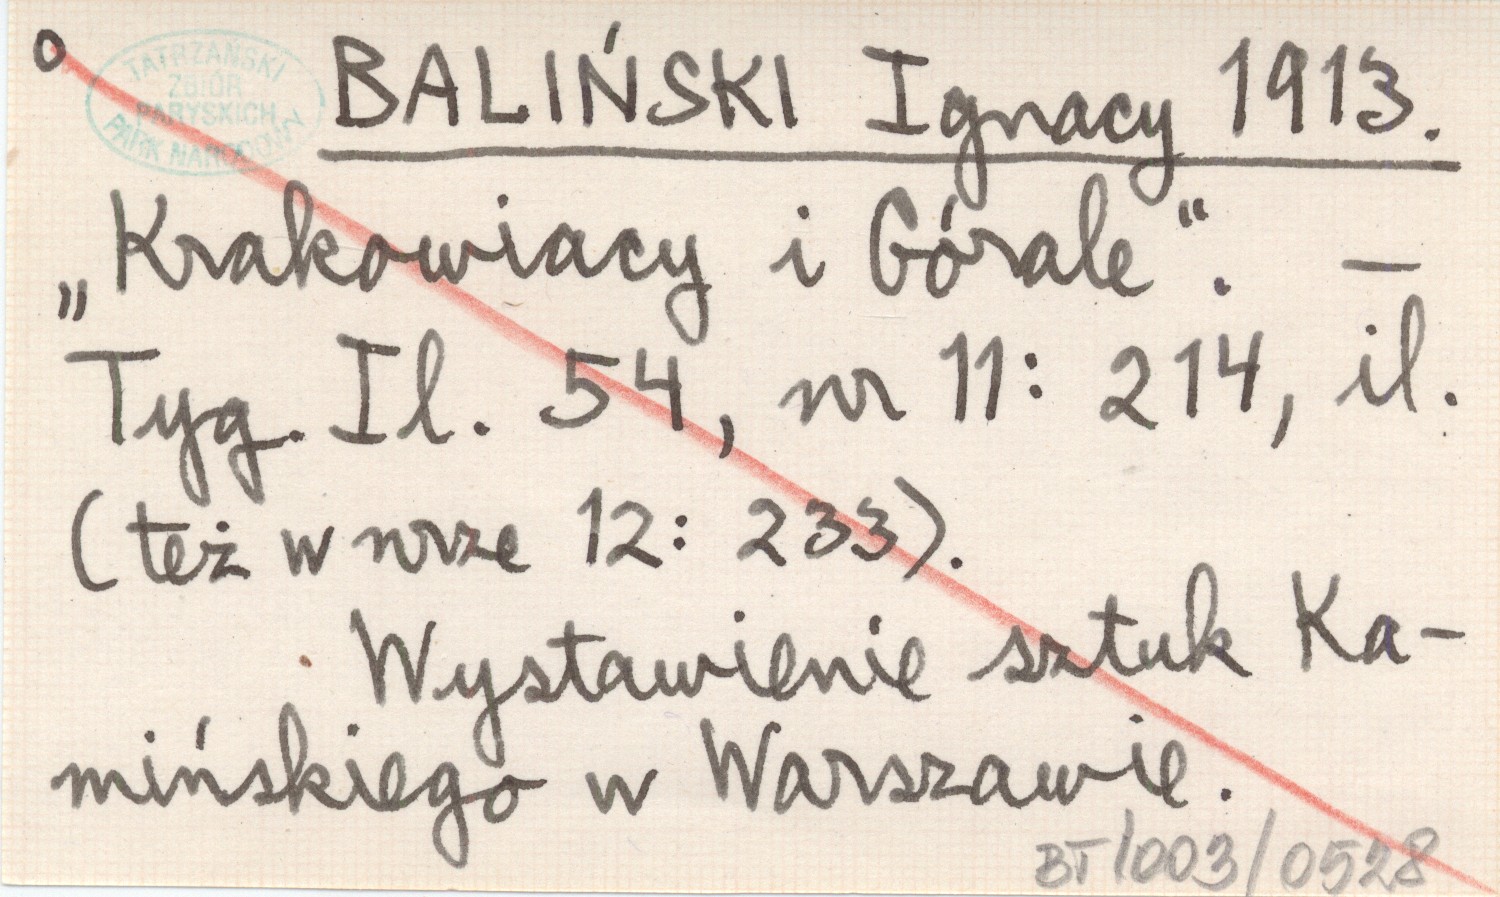 o
TATRZAŃSKI
ZBIÓR
PARYSKICH
PARK NARODOWY
BALIŃSKI Ignacy 1913.
„Krakowiacy i Górale“. —
Tyg. Il. 54, nr 11: 214, il.
(też w nrze 12: 233).
Wystawienie sztuk Ka-
mińskiego w Warszawie.
BT/003/0528